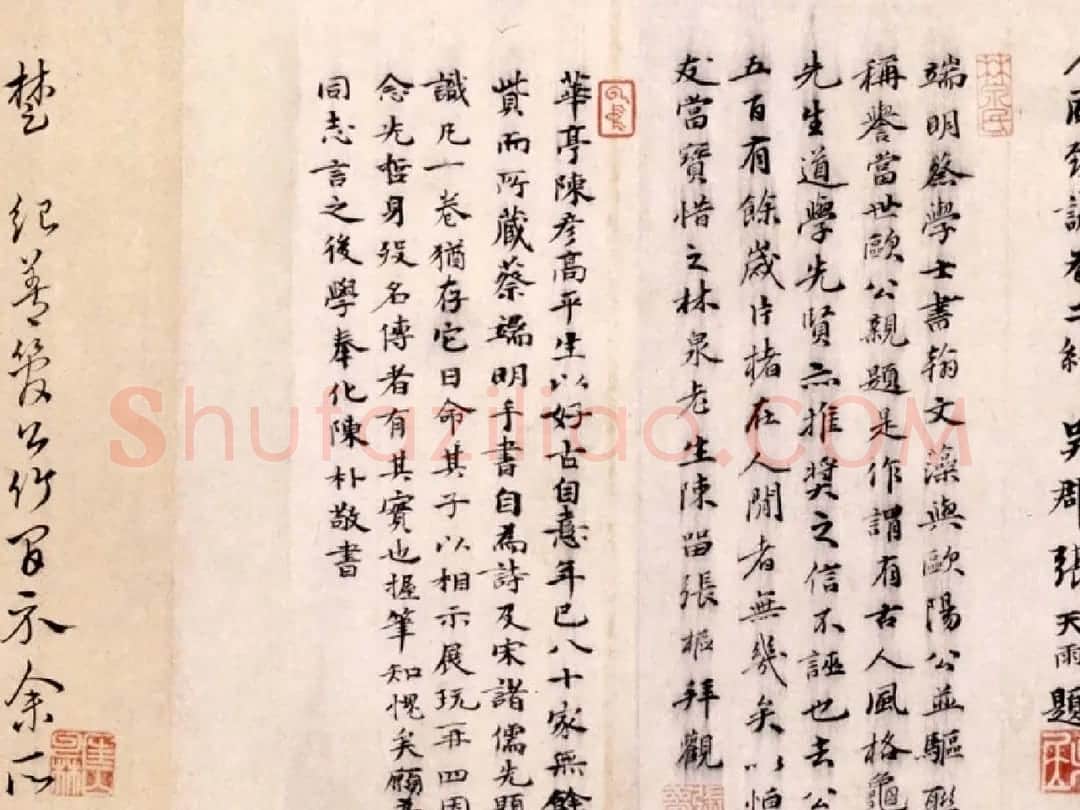 詩卷二紙 吳郡張天雨題
端明蔡學士書翰文藻與歐陽公並驅聯
稱譽當世歐公親題是作謂有古人風格龜
先生道學先賢亦推奨之信不誣也去公
五百有餘歲片楮在人間者無幾矣以
友當寶惜之林泉老生陳留張樞拜觀
華亭陳彥高平生以好古自憙年已八十家無餘
貲而所藏蔡端明手書自為詩及宋諸儒先題
識凡一卷猶存它日命其子以相示展玩再四因
念先哲身歿名傳者有其實也握筆知愧矣願
同志言之後學奉化陳朴敬書
楚 紀善筦公竹間示余所
Shufaziliao.COM